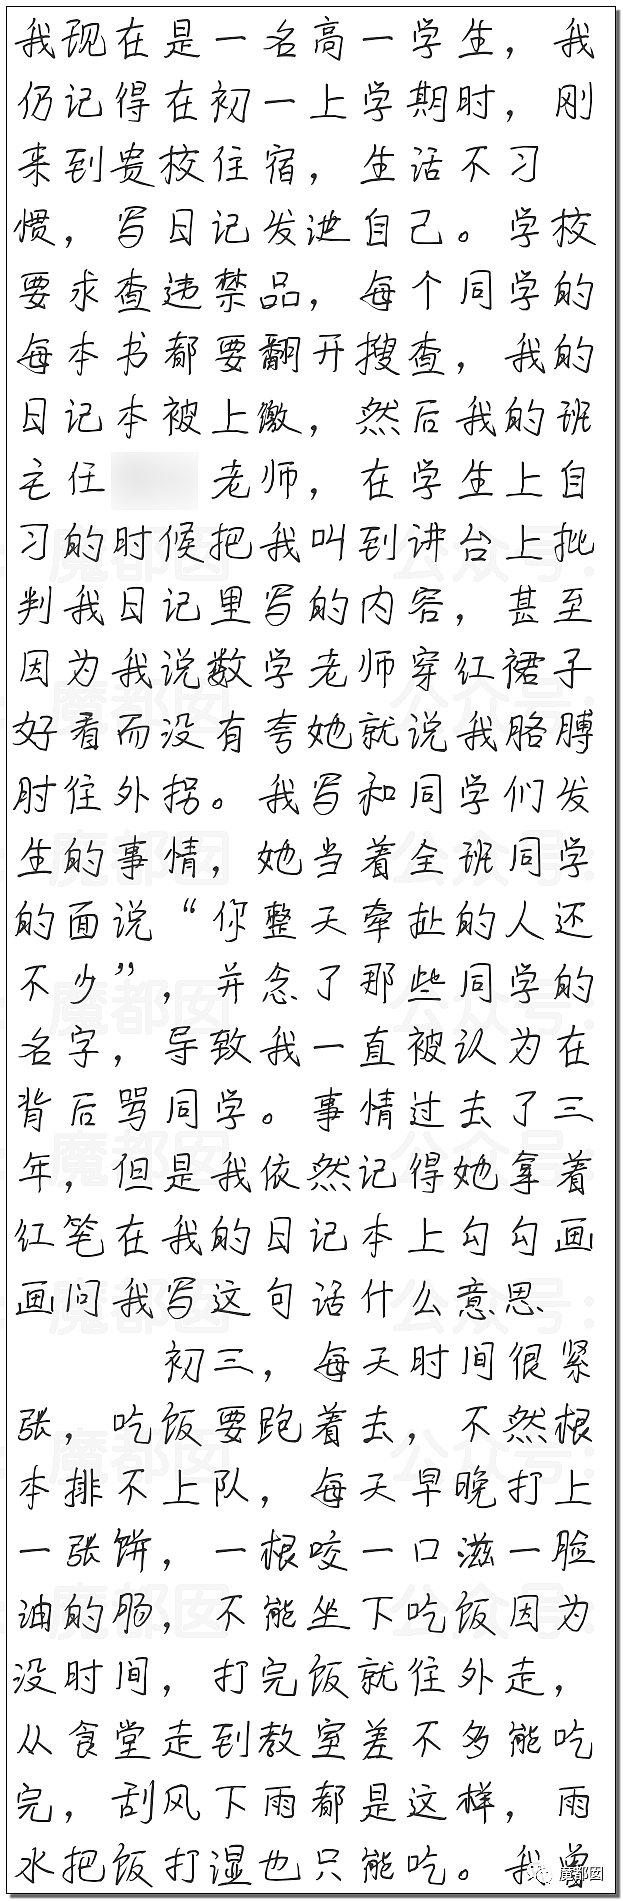 我现在是一名高一学生，我
仍记得在初一上学期时，刚
来到贵校住宿，生活不习
惯，写日记发泄自己。学校
要求查违禁品，每个同学的
每本书都要翻开搜查，我的
日记本被上缴，然后我的班
主任 老师，在学生上自
习的时候把我叫到讲台上批
判我日记里写的内容，甚至
因为我说数学老师穿红裙子
好看而没有夸她就说我胳膊
肘往外拐。我写和同学们发
生的事情，她当着全班同学
的面说“你整天牵扯的人还
不少”，并念了那些同学的
名字，导致我一直被认为在
背后骂同学。事情过去了三
年，但是我依然记得她拿着
红笔在我的日记本上勾勾画
画问我写这句话什么意思
初三，每天时间很紧
张，吃饭要跑着去，不然根
本排不上队，每天早晚打上
一张饼，一根咬一口滋一脸
油的肠，不能坐下吃饭因为
没时间，打完饭就往外走，
从食堂走到教室差不多能吃
完，刮风下雨都是这样，雨
水把饭打湿也只能吃。我曾
魔都囡